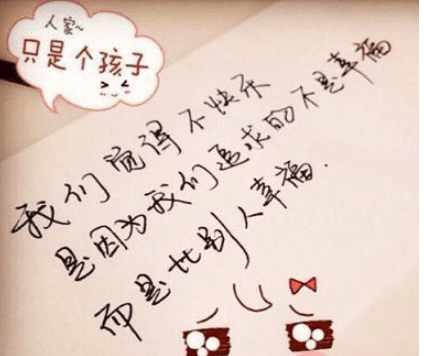 人家~
只是个孩子
我们觉得不快乐
是因为我们追求的不是幸福
而是比别人幸福.